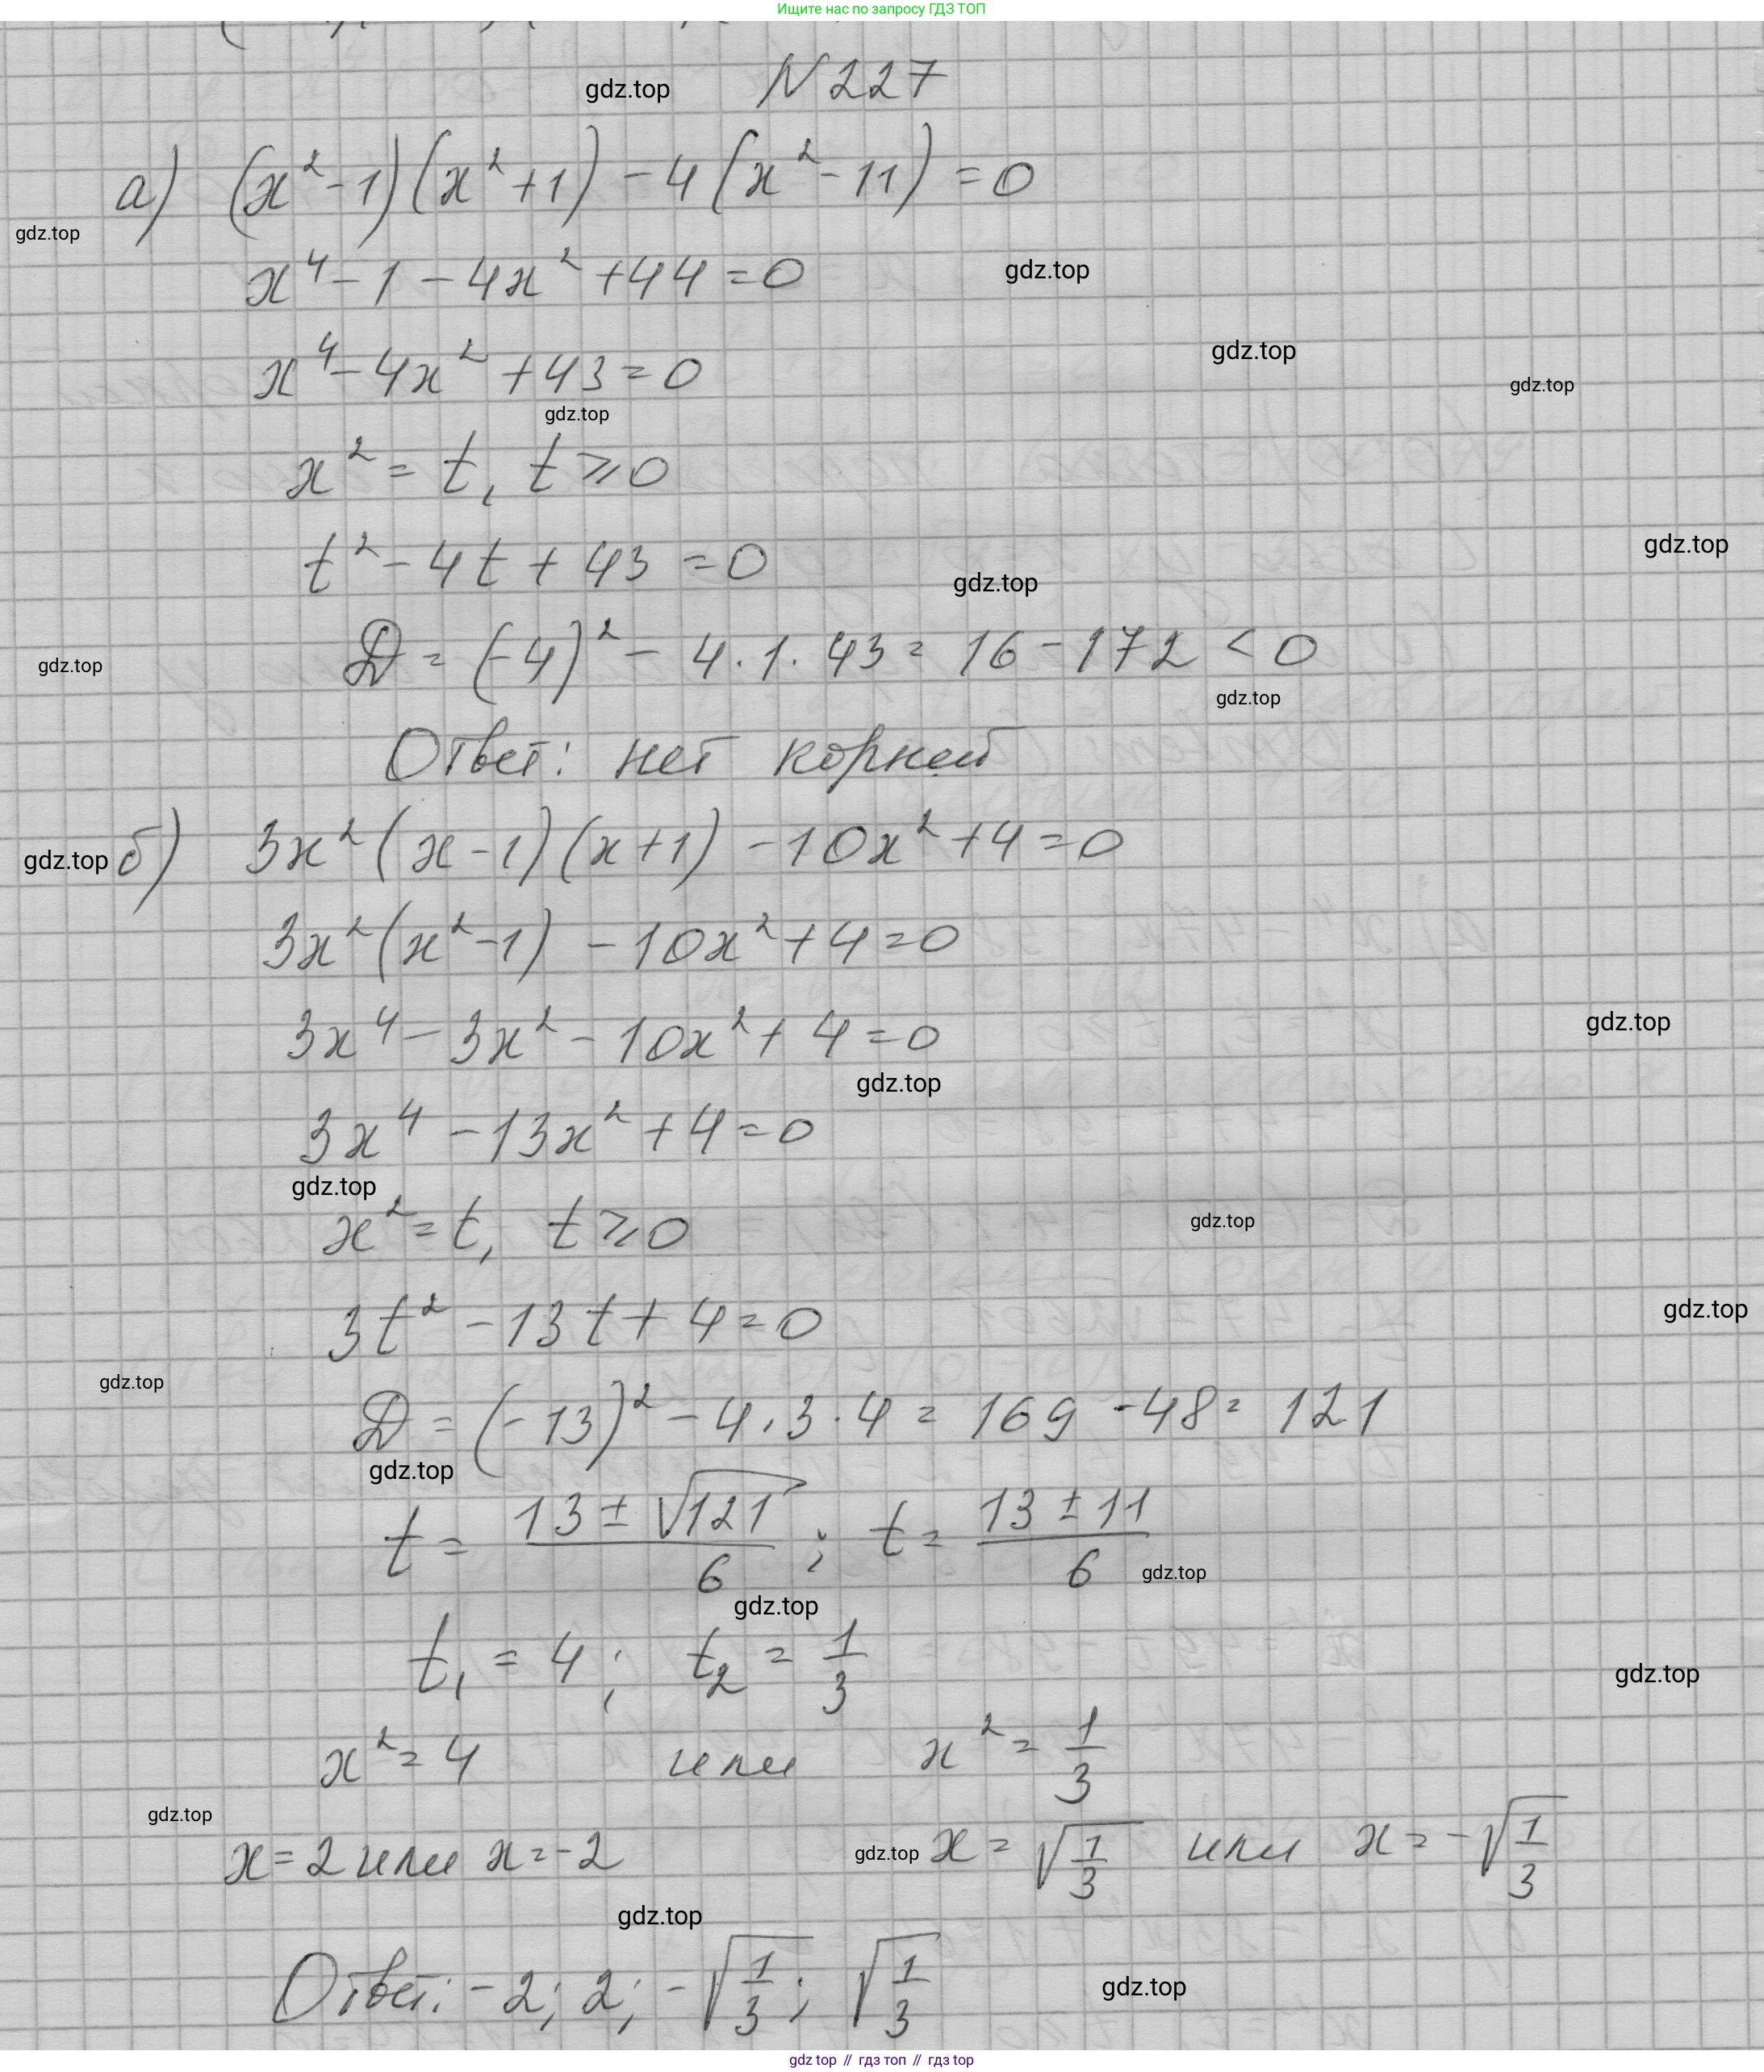 Ищите нас по запросу ГДЗ ТОП
gdz.top N 227
а) (x²-1)(x²+1) - 4(x²-11) = 0
gdz.top
x⁴ - 1 - 4x² + 44 = 0 gdz.top
x⁴ - 4x² + 43 = 0 gdz.top
gdz.top
gdz.top
x² = t, t ⩾ 0
t² - 4t + 43 = 0 gdz.top
gdz.top
D = (-4)² - 4·1·43 = 16 - 172 < 0
gdz.top
gdz.top
Ответ: нет корней
gdz.top б) 3x²(x-1)(x+1) - 10x² + 4 = 0
3x²(x²-1) - 10x² + 4 = 0
3x⁴ - 3x² - 10x² + 4 = 0 gdz.top
gdz.top
3x⁴ - 13x² + 4 = 0
gdz.top
x² = t, t ⩾ 0 gdz.top
3t² - 13t + 4 = 0 gdz.top
gdz.top
D = (-13)² - 4·3·4 = 169 - 48 = 121
gdz.top
t = (13 ± √121)/6 ; t = (13 ± 11)/6 gdz.top
gdz.top
t₁ = 4; t₂ = 1/3 gdz.top
x² = 4 или x² = 1/3
gdz.top
x = 2 или x = -2 gdz.top x = √(1/3) или x = -√(1/3)
gdz.top
Ответ: -2; 2; -√(1/3); √(1/3) gdz.top
gdz top // гдз топ // gdz top